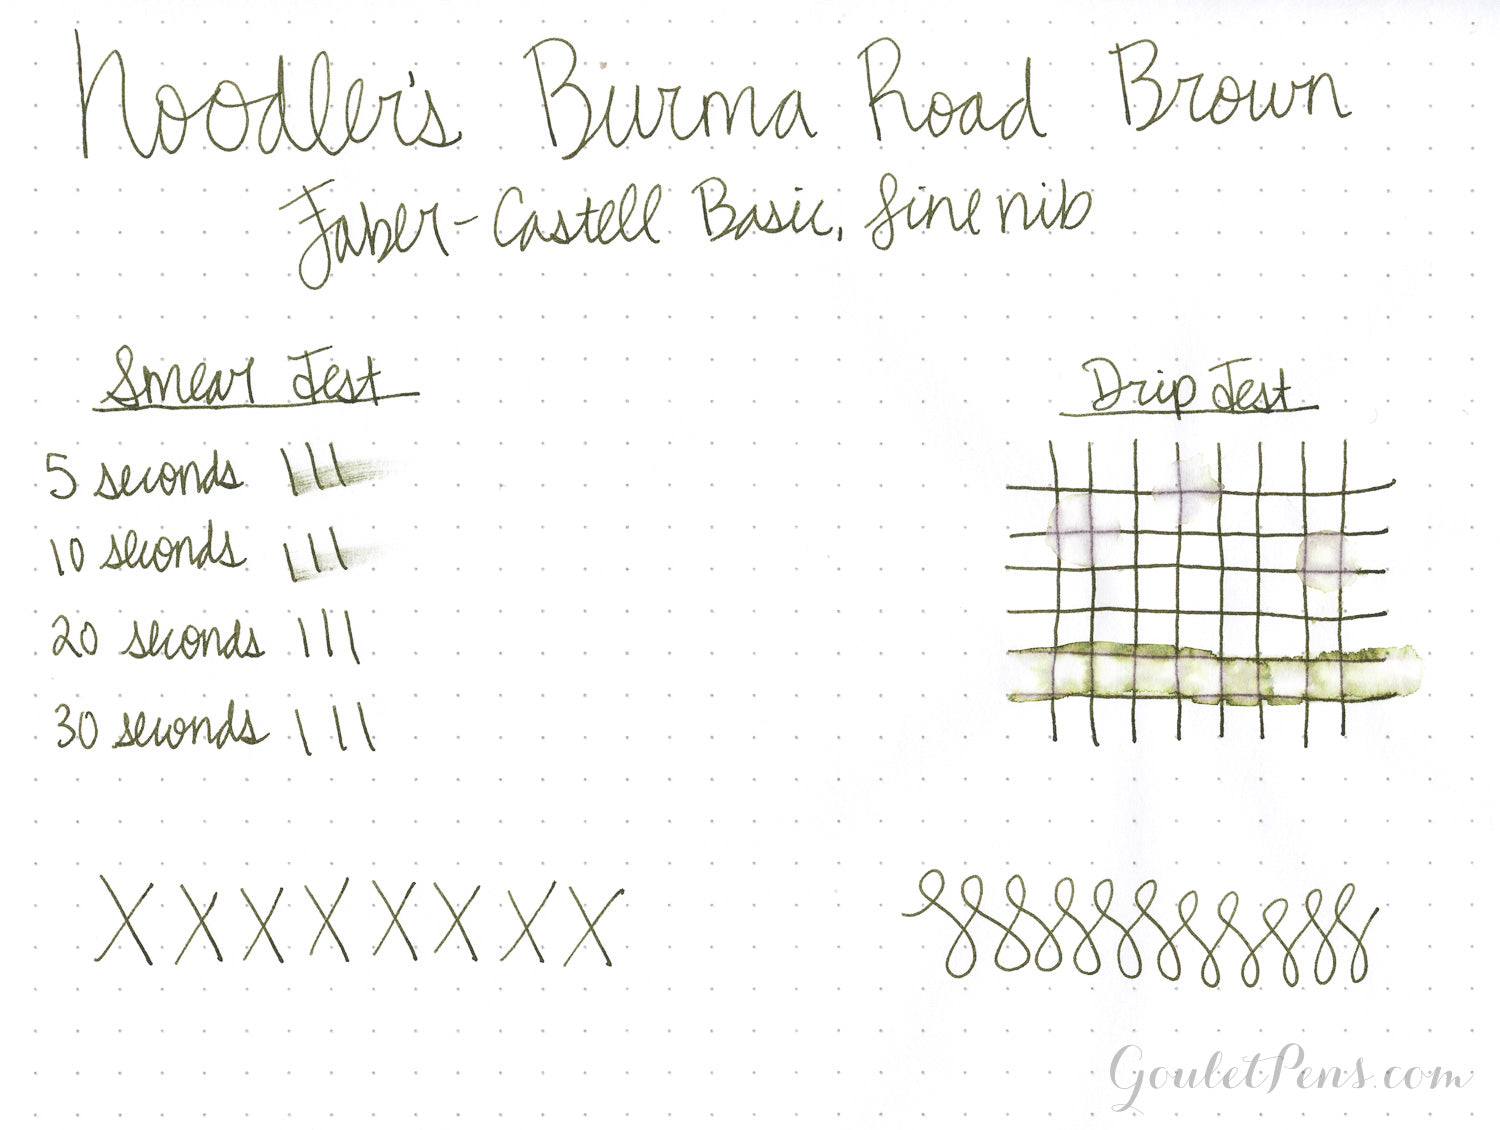 Noodler's Burma Road Brown
Faber-Castell Basic, fine nib
Smear Test
5 seconds
10 seconds
20 seconds
30 seconds
Drip Test
GouletPens.com